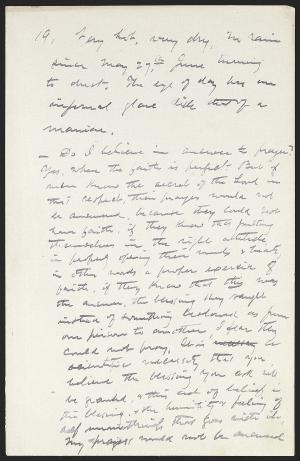 19. Very hot, very dry, no rain
since May 29th. June turning
to dust. The eye of day has an
infernal glare like that of a
maniac.
— Do I believe in answer to prayer?
Yes, when the faith is perfect. But if
men knew the secret of the Lord in
this respect, their prayers would not
be answered, because they could not
have faith, if they knew that putting
themselves in the right attitude
in respect opening their minds & hearts,
in other words a proper exercise of
faith, if they knew that this was
the answer, the blessing they sought
instead of something bestowed as from
one person to another I fear they
could not pray. It is be
necessary that you
believe the blessing you ask will
be granted, & this act of belief is
the blessing, & the humility & feeling of
self unworthiness that goes with it.
My prayers would not be answered